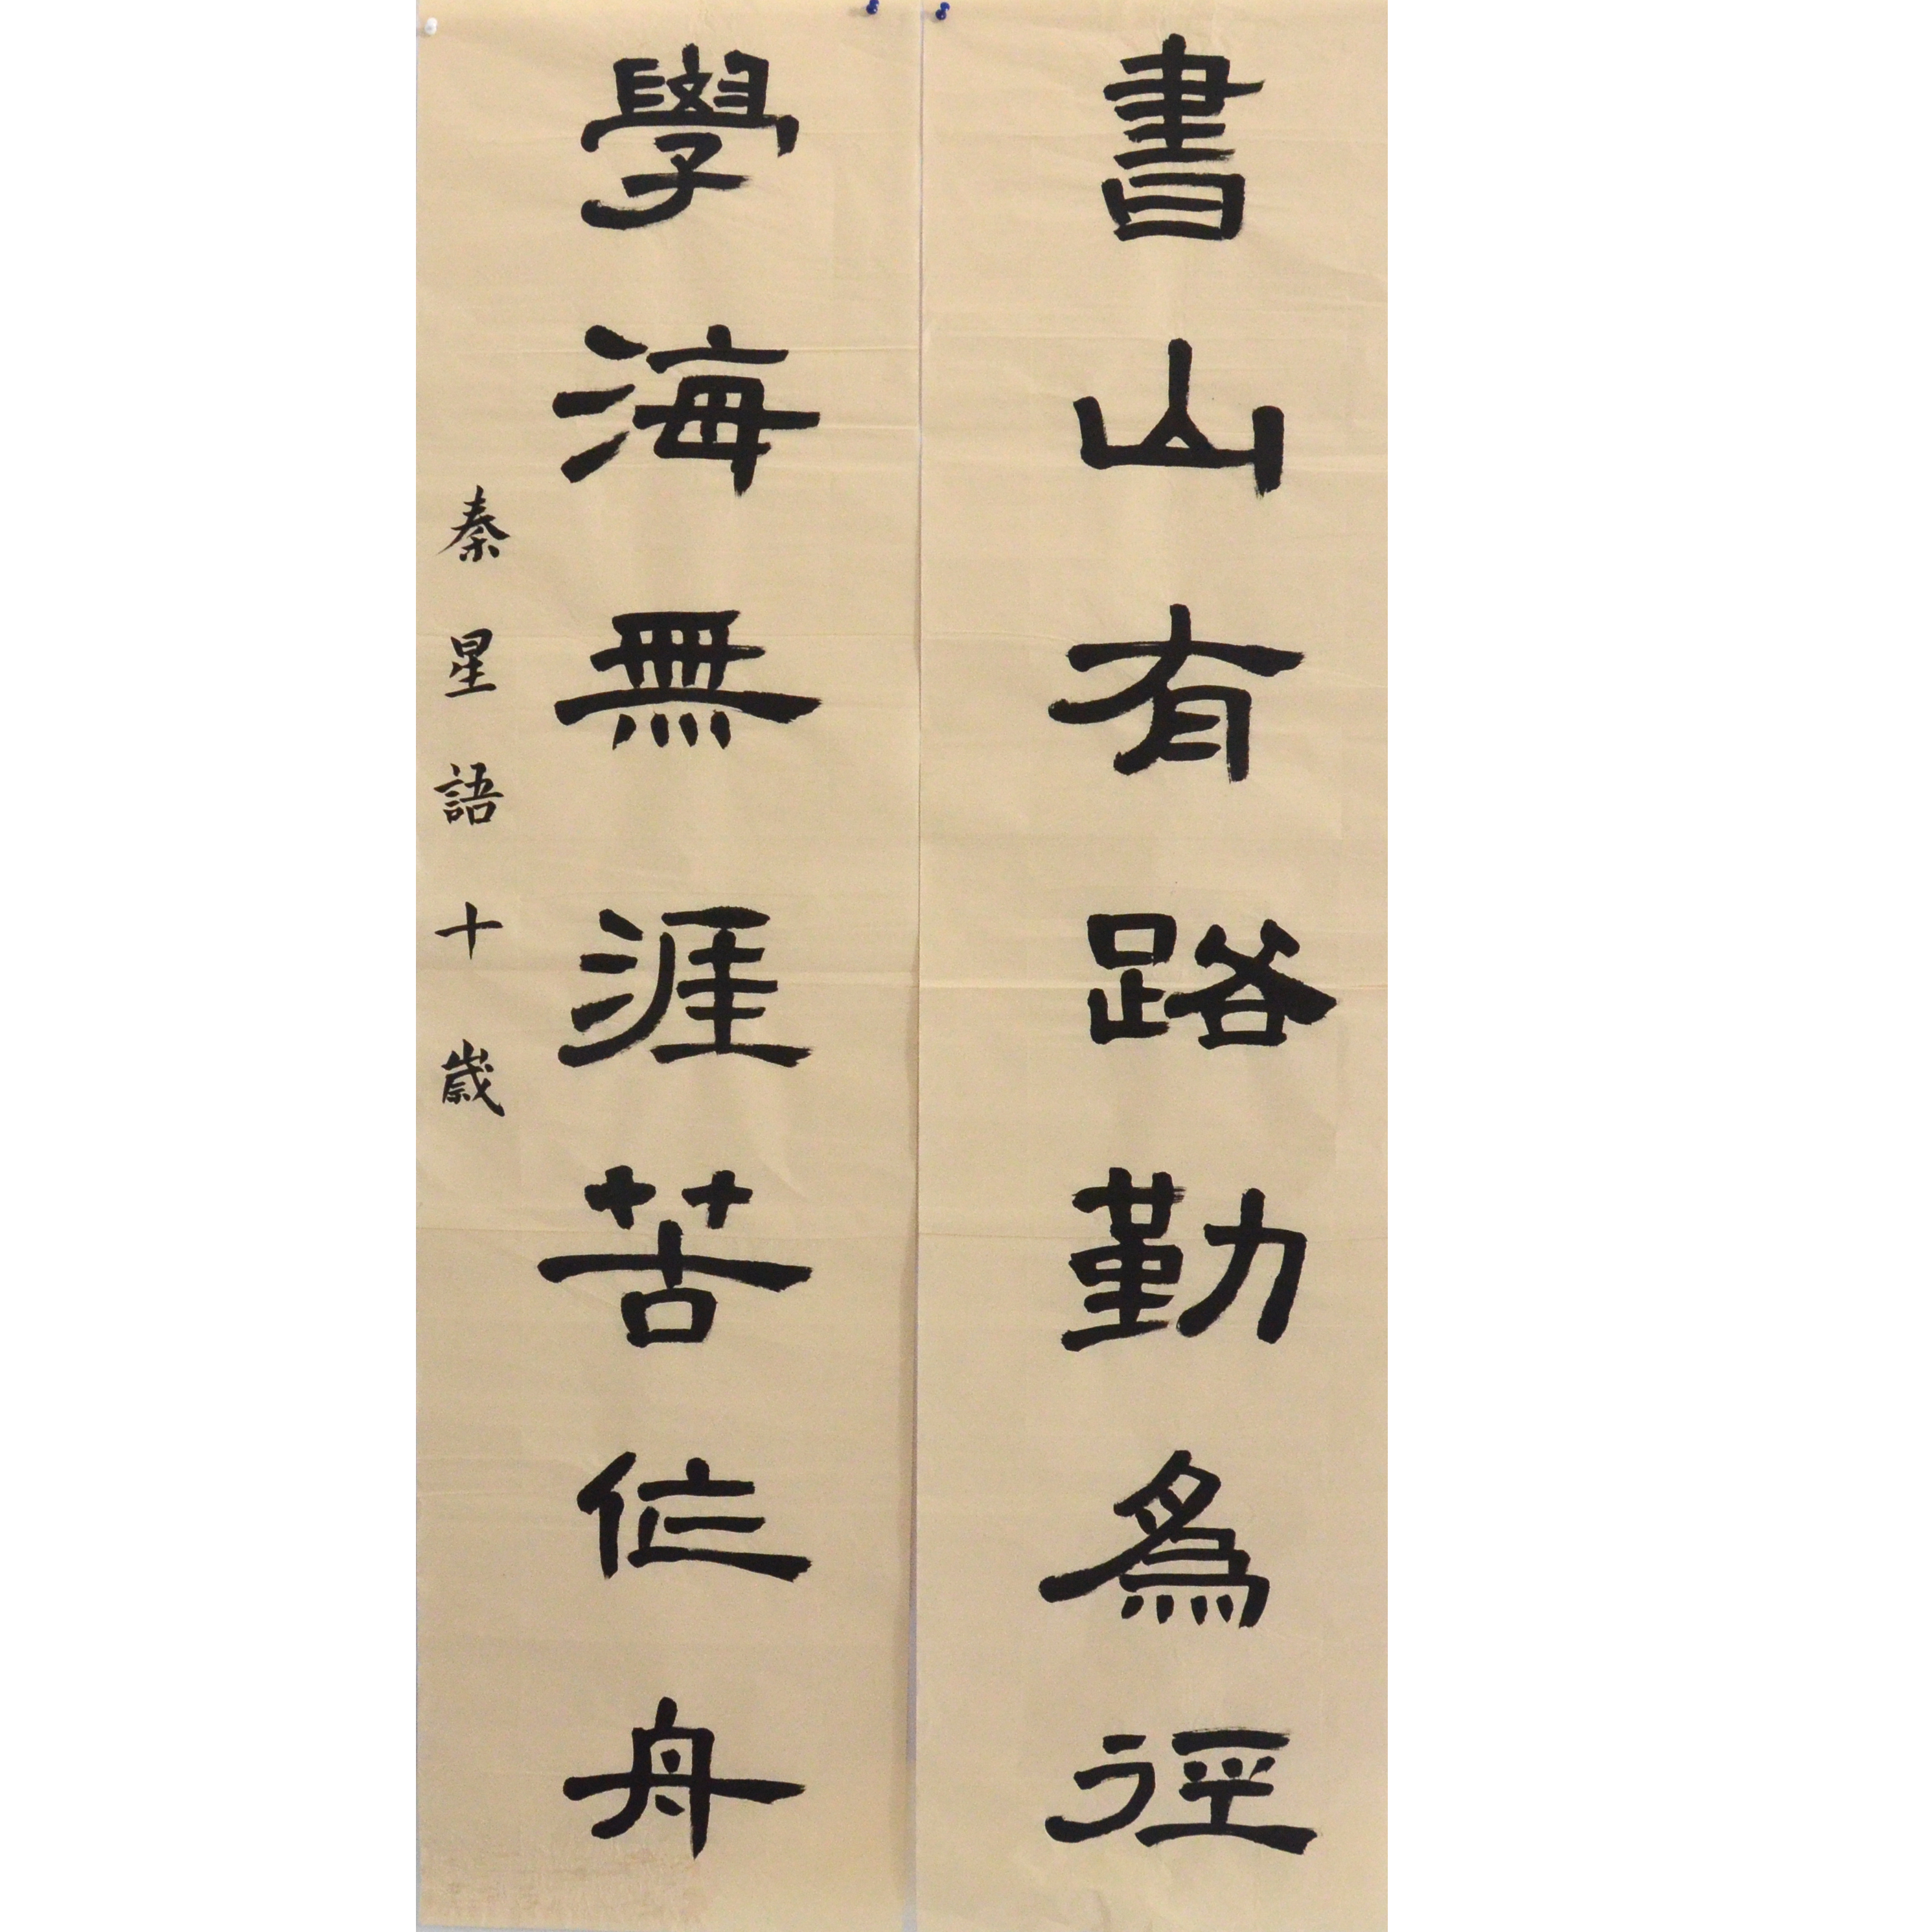 書山有路勤爲徑
學海無涯苦作舟
秦星語十歲